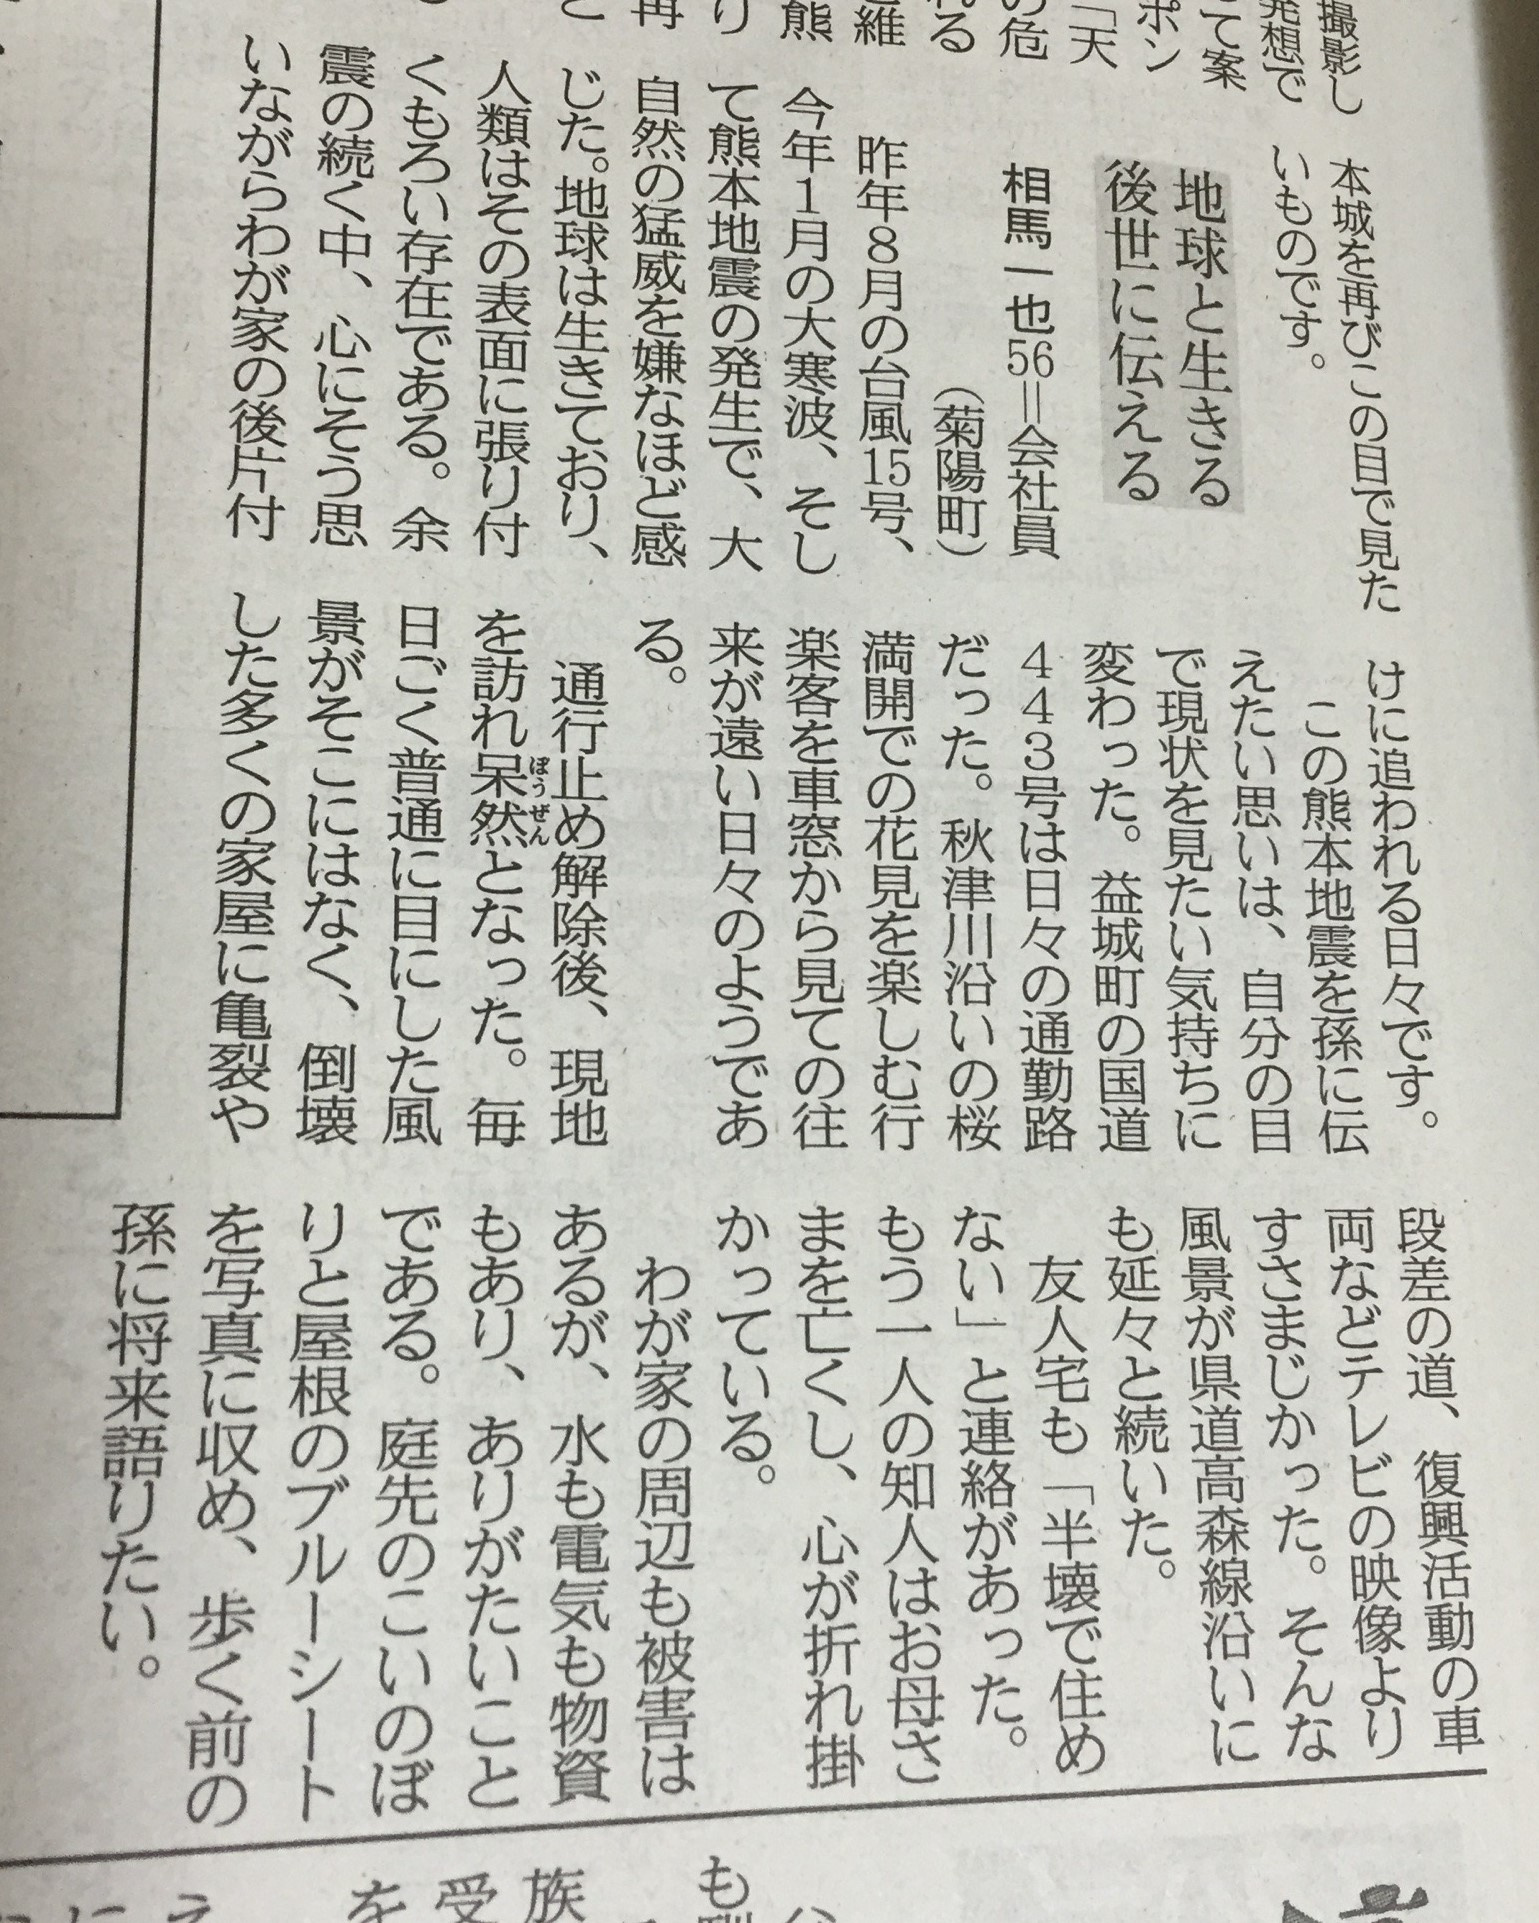 撮影し
発想で
て案
ポン
「天
の危
れる
維
熊
り
再
と
本城を再びこの目で見た
いものです。
地球と生きる
後世に伝える
相馬一也56＝会社員
（菊陽町）
昨年８月の台風15号、
今年１月の大寒波、そし
て熊本地震の発生で、大
自然の猛威を嫌なほど感
じた。地球は生きており、
人類はその表面に張り付
くもろい存在である。余
震の続く中、心にそう思
いながらわが家の後片付
けに追われる日々です。
この熊本地震を孫に伝
えたい思いは、自分の目
で現状を見たい気持ちに
変わった。益城町の国道
４４３号は日々の通勤路
だった。秋津川沿いの桜
満開での花見を楽しむ行
楽客を車窓から見ての往
来が遠い日々のようであ
る。
通行止め解除後、現地
を訪れ呆然となった。毎
ぼうぜん
日ごく普通に目にした風
景がそこにはなく、倒壊
した多くの家屋に亀裂や
段差の道、復興活動の車
両などテレビの映像より
すさまじかった。そんな
風景が県道高森線沿いに
も延々と続いた。
友人宅も「半壊で住め
ない」と連絡があった。
もう一人の知人はお母さ
まを亡くし、心が折れ掛
かっている。
わが家の周辺も被害は
あるが、水も電気も物資
もあり、ありがたいこと
である。庭先のこいのぼ
りと屋根のブルーシート
を写真に収め、歩く前の
孫に将来語りたい。
も
族
受
を
え
に